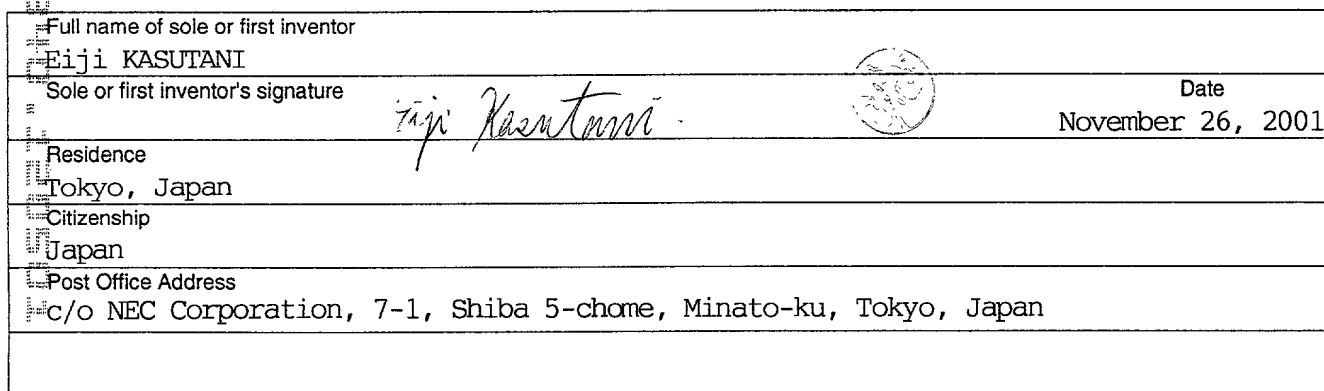 Full name of sole or first inventor
Eiji KASUTANI
Sole or first inventor's signature
Eiji Kasutani
Date
November 26, 2001
Residence
Tokyo, Japan
Citizenship
Japan
Post Office Address
c/o NEC Corporation, 7-1, Shiba 5-chome, Minato-ku, Tokyo, Japan